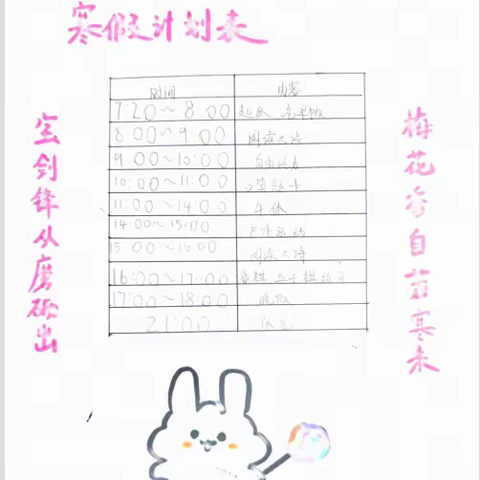 寒假计划表
宝剑锋从磨砺出
时间 内容
7:20~8:00 起床
8:00~9:00
9:00~10:00 自由活动
10:00~11:00
11:00~14:00 午休
14:00~15:00 户外运动
15:00~16:00
16:00~17:00 象棋 五子棋
17:00~18:00 晚饭
21:00 休息
梅花香自苦寒来